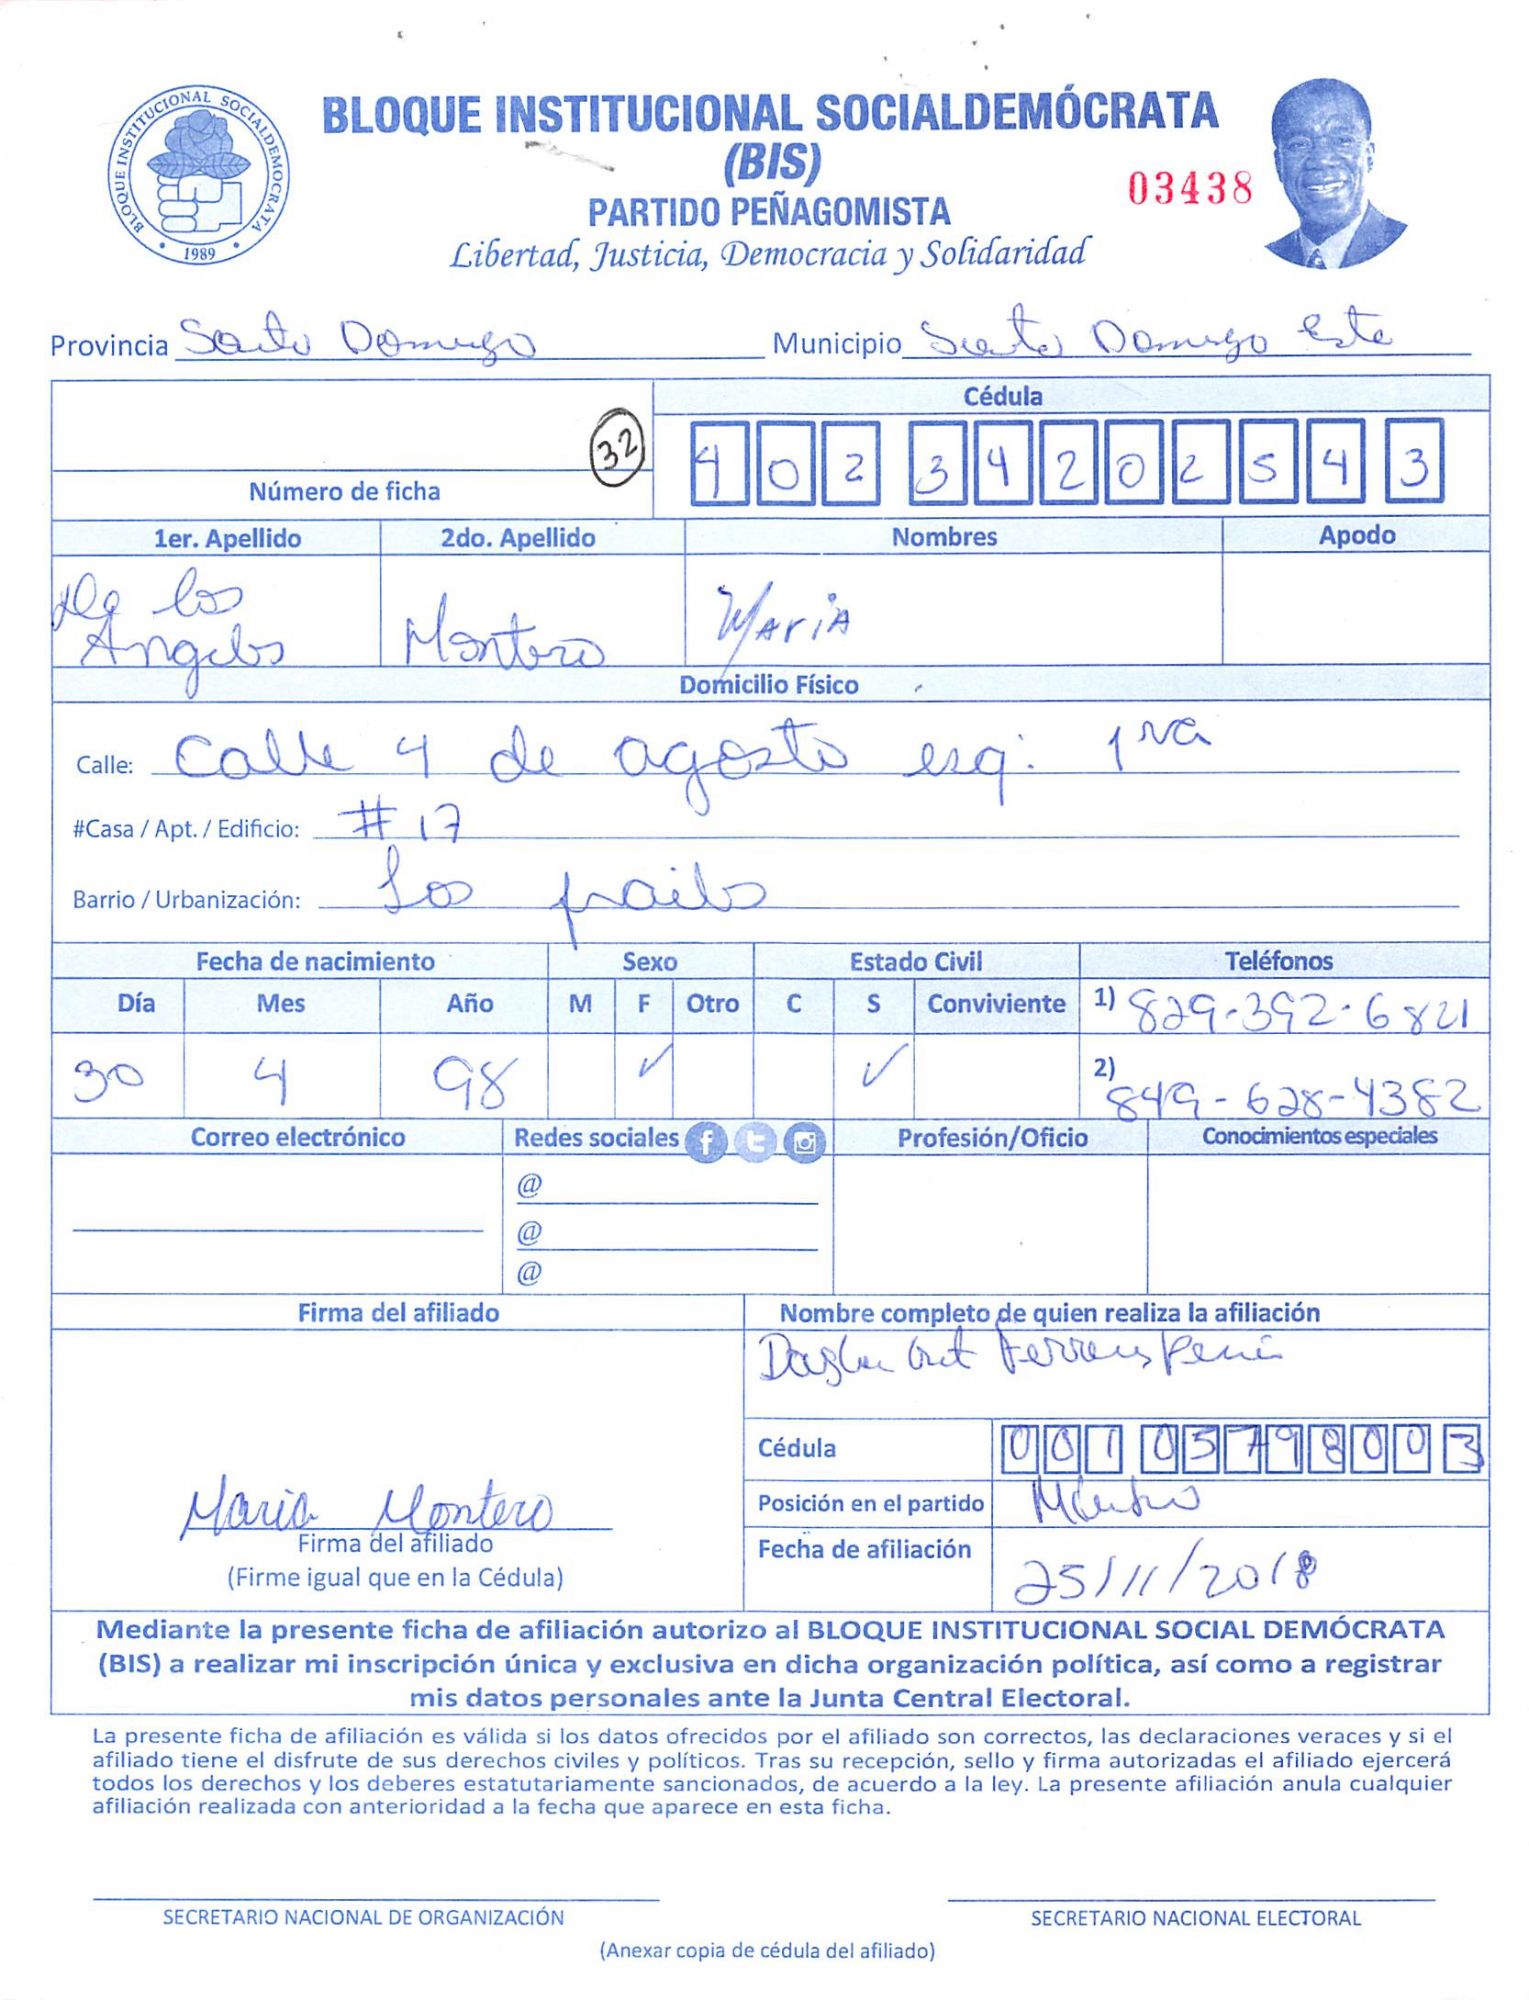 BLOQUE INSTITUCIONAL SOCIALDEMÓCRATA
BLOQUE INSTITUCIONAL SOCIALDEMOCRATA
1989
(BIS)
03438
PARTIDO PEÑAGOMISTA
Libertad, Justicia, Democracia y Solidaridad
Provincia Santo Domingo Municipio Santo Domingo Este
Cédula
32
402 3420254 3
Número de ficha
1er. Apellido 2do. Apellido Nombres Apodo
De los
Angeles Montero Maria
Domicilio Físico
Calle: Calle 4 de agosto esq: 1ra
#Casa / Apt. / Edificio: # 17
Barrio / Urbanización: Los frailes
Fecha de nacimiento Sexo Estado Civil Teléfonos
Día Mes Año M F Otro C S Conviviente 1) 829-392-6821
30 4 98 ✓ ✓ 2) 849-628-4382
Correo electrónico Redes sociales Profesión/Oficio Conocimientos especiales
@
@
@
Firma del afiliado Nombre completo de quien realiza la afiliación
Cédula 001 0579800 3
Maria Montero
Posición en el partido
Firma del afiliado
(Firme igual que en la Cédula)
Fecha de afiliación 25/11/2018
Mediante la presente ficha de afiliación autorizo al BLOQUE INSTITUCIONAL SOCIAL DEMÓCRATA
(BIS) a realizar mi inscripción única y exclusiva en dicha organización política, así como a registrar
mis datos personales ante la Junta Central Electoral.
La presente ficha de afiliación es válida si los datos ofrecidos por el afiliado son correctos, las declaraciones veraces y si el
afiliado tiene el disfrute de sus derechos civiles y políticos. Tras su recepción, sello y firma autorizadas el afiliado ejercerá
todos los derechos y los deberes estatutariamente sancionados, de acuerdo a la ley. La presente afiliación anula cualquier
afiliación realizada con anterioridad a la fecha que aparece en esta ficha.
SECRETARIO NACIONAL DE ORGANIZACIÓN SECRETARIO NACIONAL ELECTORAL
(Anexar copia de cédula del afiliado)